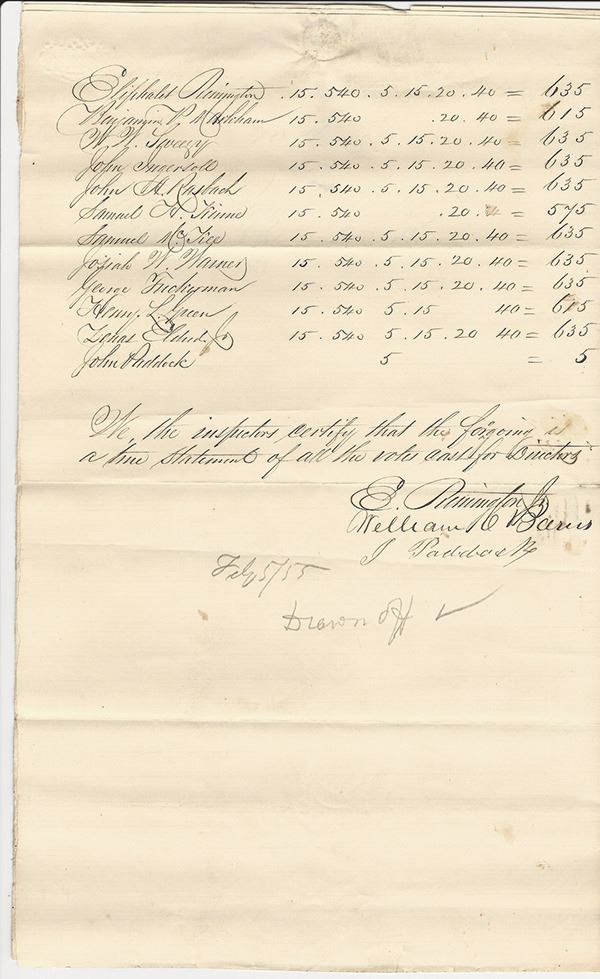 Eliphalet Remington . 15 . 540 . 5 . 15 . 20 . 40 = 635
Benjamin P. Markham 15 . 540 . 20 . 40 = 615
W. W. Swezey 15 . 540 . 5 . 15 . 20 . 40 = 635
John Ingersoll 15 . 540 . 5 . 15 . 20 . 40 = 635
John H. Rasbach 15 . 540 . 5 . 15 . 20 . 40 = 635
Samuel H. Kinne 15 . 540 . 20 . = 575
Samuel McKee 15 . 540 . 5 . 15 . 20 . 40 = 635
Josiah W. Warner 15 . 540 . 5 . 15 . 20 . 40 = 635
George Tuckerman 15 . 540 . 5 . 15 . 20 . 40 = 635
Henry L. Green 15 . 540 5 . 15 40 = 615
Zenas Eldred Jr 15 . 540 5 . 15 . 20 40 = 635
John Paddock 5 = 5
We the inspectors certify that the forgoing is
a true Statement of all the votes cast for Directors
E. Remington Jr
William C Barns
J Paddock
Feb 5/55
Drawn off ✓